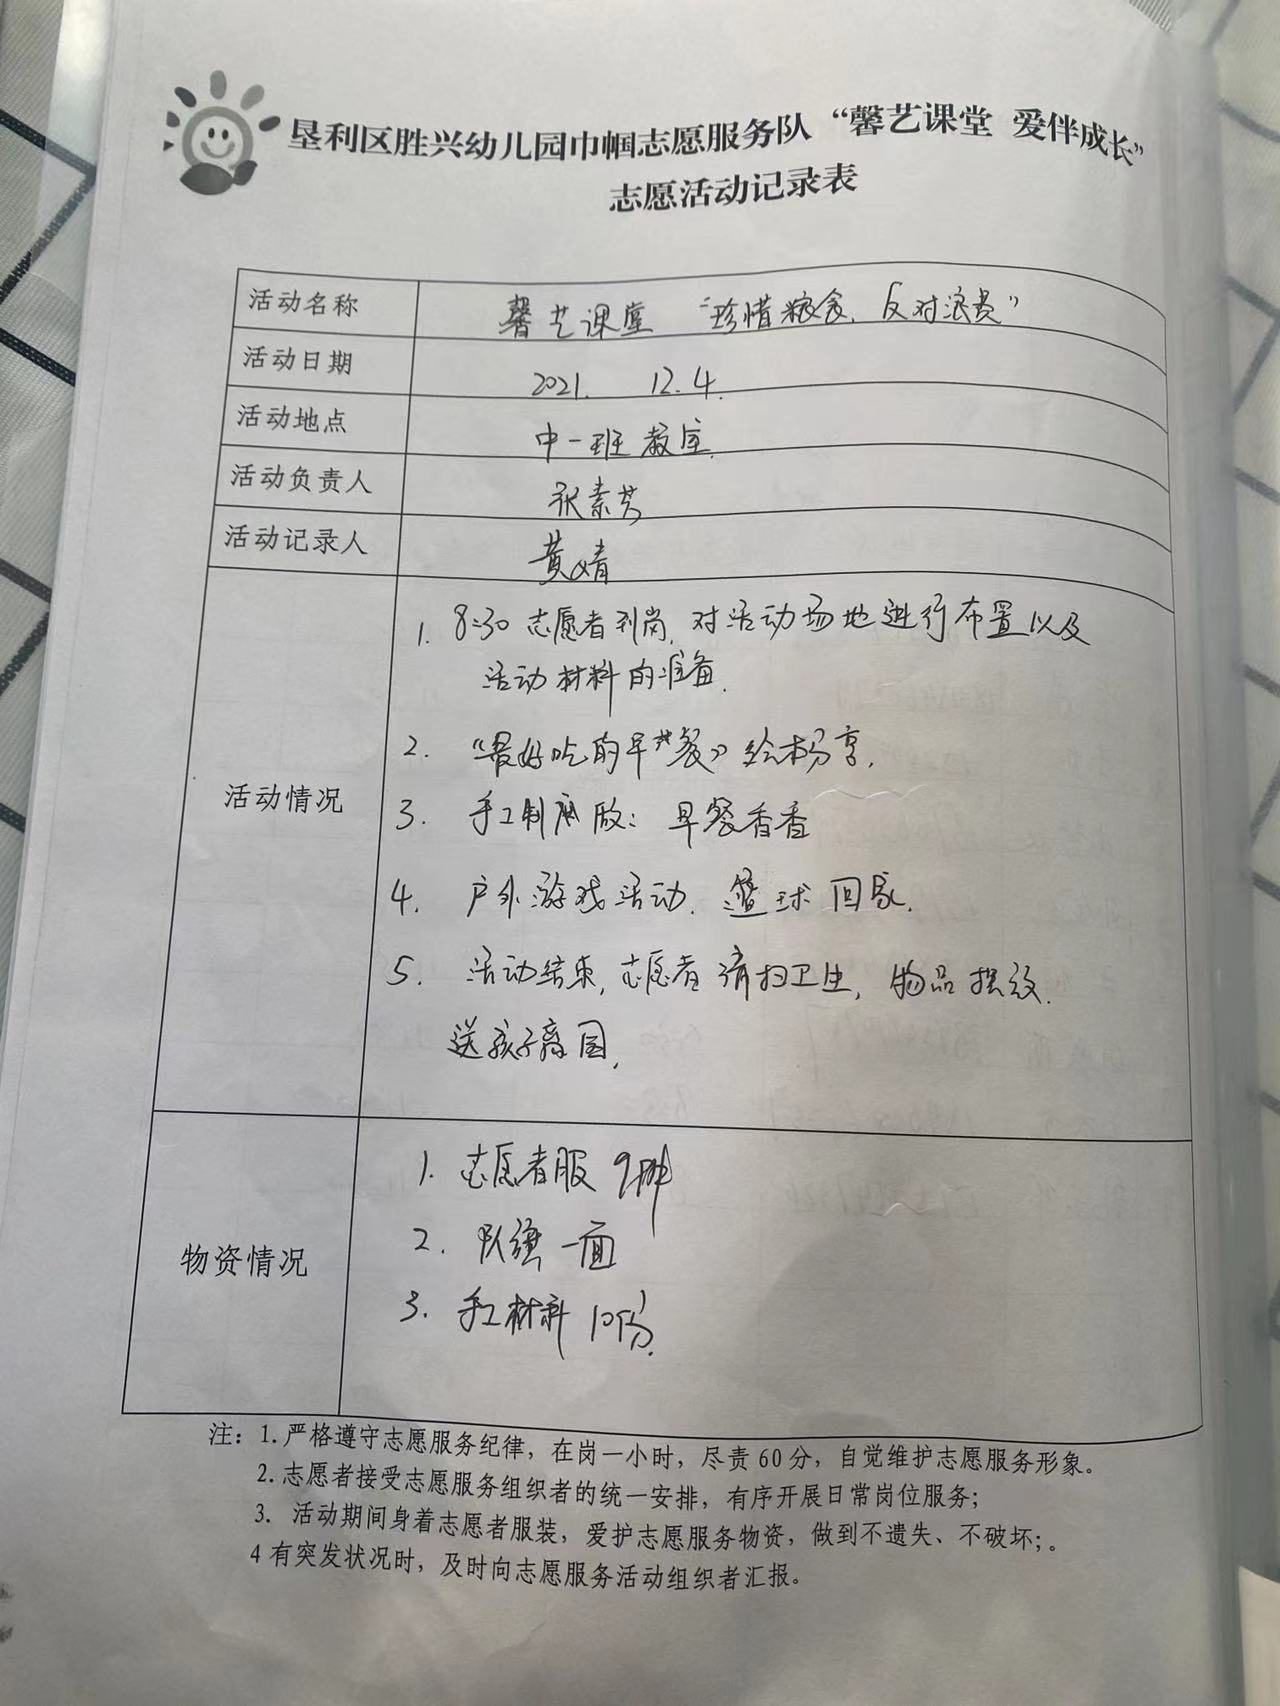 垦利区胜兴幼儿园巾帼志愿服务队“馨艺课堂 爱伴成长”
志愿活动记录表
活动名称 馨艺课堂 “珍惜粮食、反对浪费”
活动日期 2021. 12.4.
活动地点 中一班教室.
活动负责人 张素芳
活动记录人 黄婧
活动情况
1. 8:30 志愿者到岗, 对活动场地进行布置以及
活动材料的准备.
2. 《最好吃的早餐》绘本分享.
3. 手工制作: 早餐香香
4. 户外游戏活动. 篮球回家.
5. 活动结束, 志愿者清扫卫生, 物品摆放.
送孩子离园.
物资情况
1. 志愿者服 9件
2. 队旗一面
3. 手工材料 10份.
注：1.严格遵守志愿服务纪律，在岗一小时，尽责60分，自觉维护志愿服务形象。
2.志愿者接受志愿服务组织者的统一安排，有序开展日常岗位服务；
3. 活动期间身着志愿者服装，爱护志愿服务物资，做到不遗失、不破坏；。
4有突发状况时，及时向志愿服务活动组织者汇报。